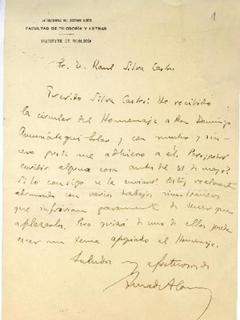 1
UNIVERSIDAD DE BUENOS AIRES
FACULTAD DE FILOSOFÍA Y LETRAS
INSTITUTO DE FILOLOGÍA
Sr. D. Raul Silva Castro
Querido Silva Castro: He recibido
la circular del Homenaje a Don Domingo
Amunátegui Solar y con mucho y sin-
cero gusto me adhiero a él. Procuraré
escribir alguna cosa antes del 31 de mayo.
Si lo consigo se la enviaré. Estoy realmente
abrumado con varios trabajos simultáneos
que sufrirían gravemente de tener que
aplazarlos. Pero quizá de uno de ellos pueda
sacar un tema apropiado al Homenaje.
Saludos afectuosos de
Amado Alonso